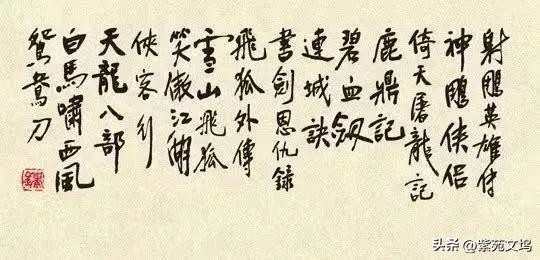 射鵰英雄传
神鵰俠侣
倚天屠龍記
鹿鼎記
碧血劔
連城訣
書劍恩仇錄
飛狐外傳
雪山飛狐
笑傲江湖
俠客行
天龍八部
白馬嘯西風
鴛鴦刀
头条 @紫苑文坞